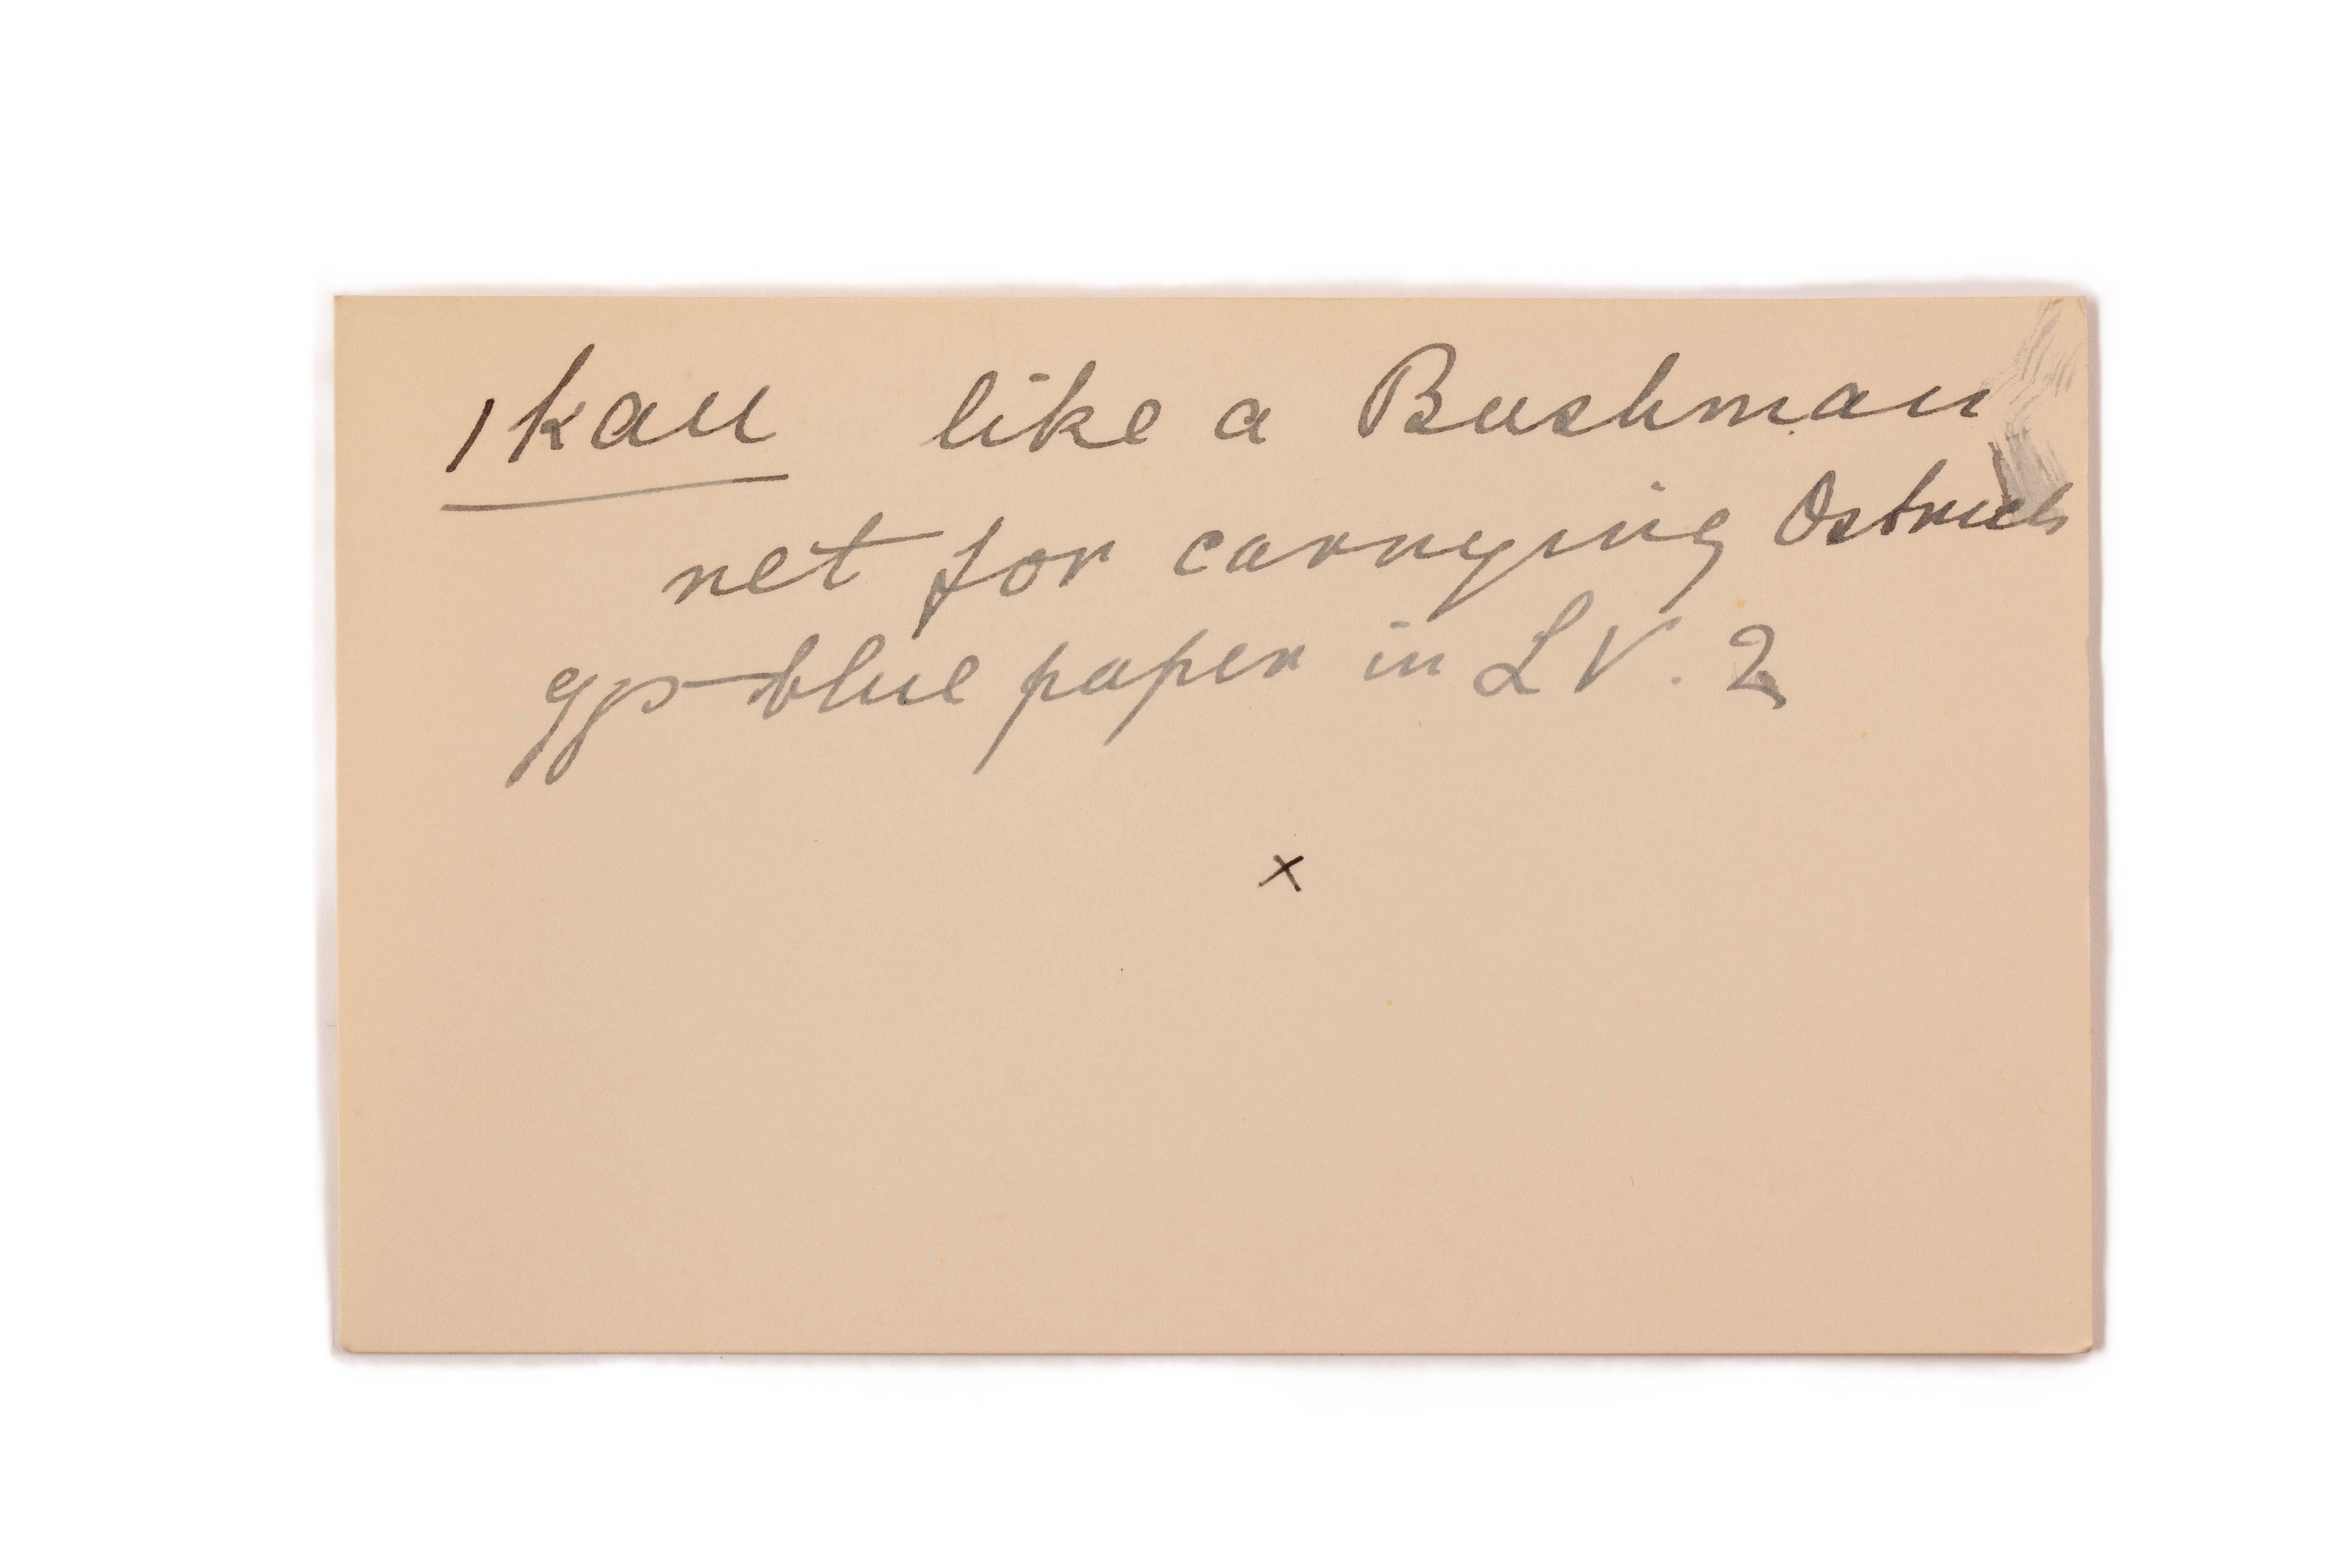 /kau like a Bushman
net for carrying Ostrich
blue paper in LV. 2
x